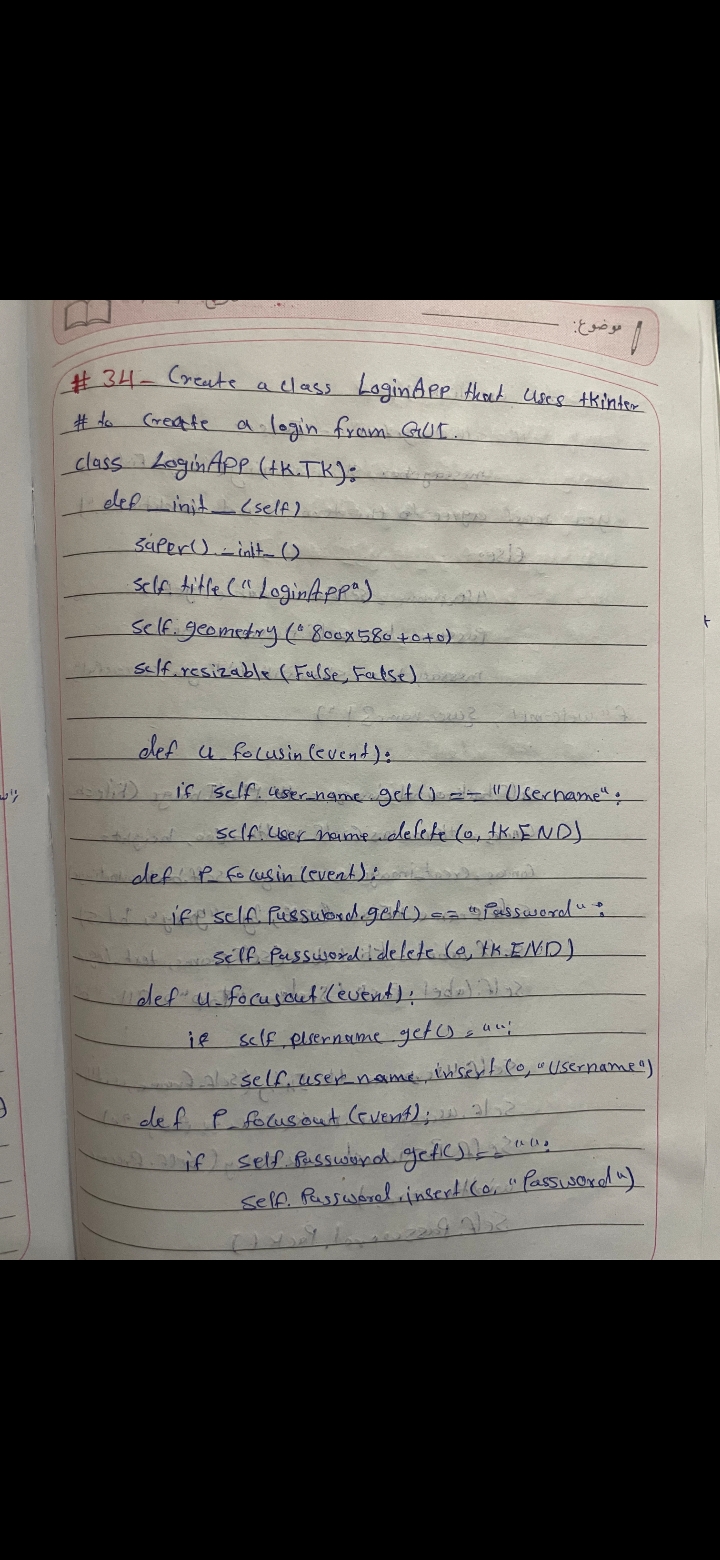 موضوع:
# 34- Create a class LoginApp that uses tkinter
# to create a login from GUI.
class LoginApp(tk.TK):
def __init__(self)
super().__init__()
self.title("LoginApp")
self.geometry("800x580+0+0)
self.resizable(False, False)
def u_focusin(event):
if self.user_name.get() == "Username":
self.user_name.delete(0, tk.END)
def P_focusin(event):
if self.Password.get() == "Password":
self.Password.delete(0, tk.END)
def u_focusout(event):
if self. get() = "":
self.user_name.insert(0, "Username")
def P_focusout(event):
if self.Password.get() == "":
self.Password.insert(0, "Password")